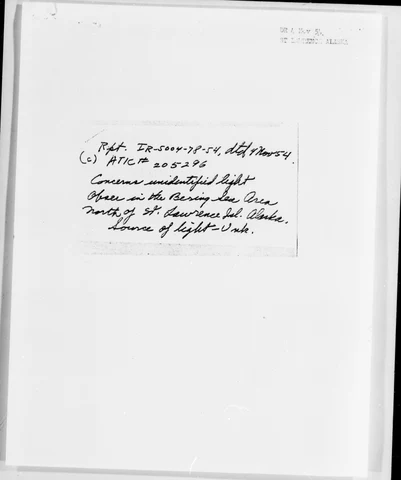 Nov 54
ST LAWRENCE ALASKA
Rpt. IR-5004-78-54, dtd 9 Nov 54.
(c) ATIC# 205296
Concerns unidentified light
Obser in the Bering Sea Area
north of St. Lawrence Isl. Alaska.
Source of light - Unk.